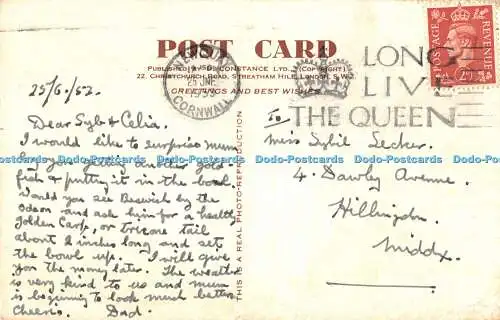 POST CARD
PUBLISHED BY D. CONSTANCE LTD., (COPYRIGHT)
22, CHRISTCHURCH ROAD, STREATHAM HILL, LONDON, S.W.
GREETINGS AND BEST WISHES
25 JNE
1953
CORNWALL
LONG
LIVE
THE QUEEN
POSTAGE
REVENUE
THIS IS A REAL PHOTO-REPRODUCTION
25/6/52.
Dear Syb & Celia.
I would like to surprise mum
by you getting another gold
fish & putting it in the bowl.
Would you see Beswick by the
Odeon and ask him for a healthy
Golden Carp, or tricore tail
about 2 inches long and set
the bowl up. I will give
you the money later. The weather
is very kind to us and mum
is beginning to look much better
Cheerio. Dad.
To
Miss Sybil Lecker.
4. Dawley Avenue.
Hillingdon.
Middx.
Dodo-Postcards Dodo-Postcards Dodo-Postcards Dodo-Postcards Dodo-Postcards